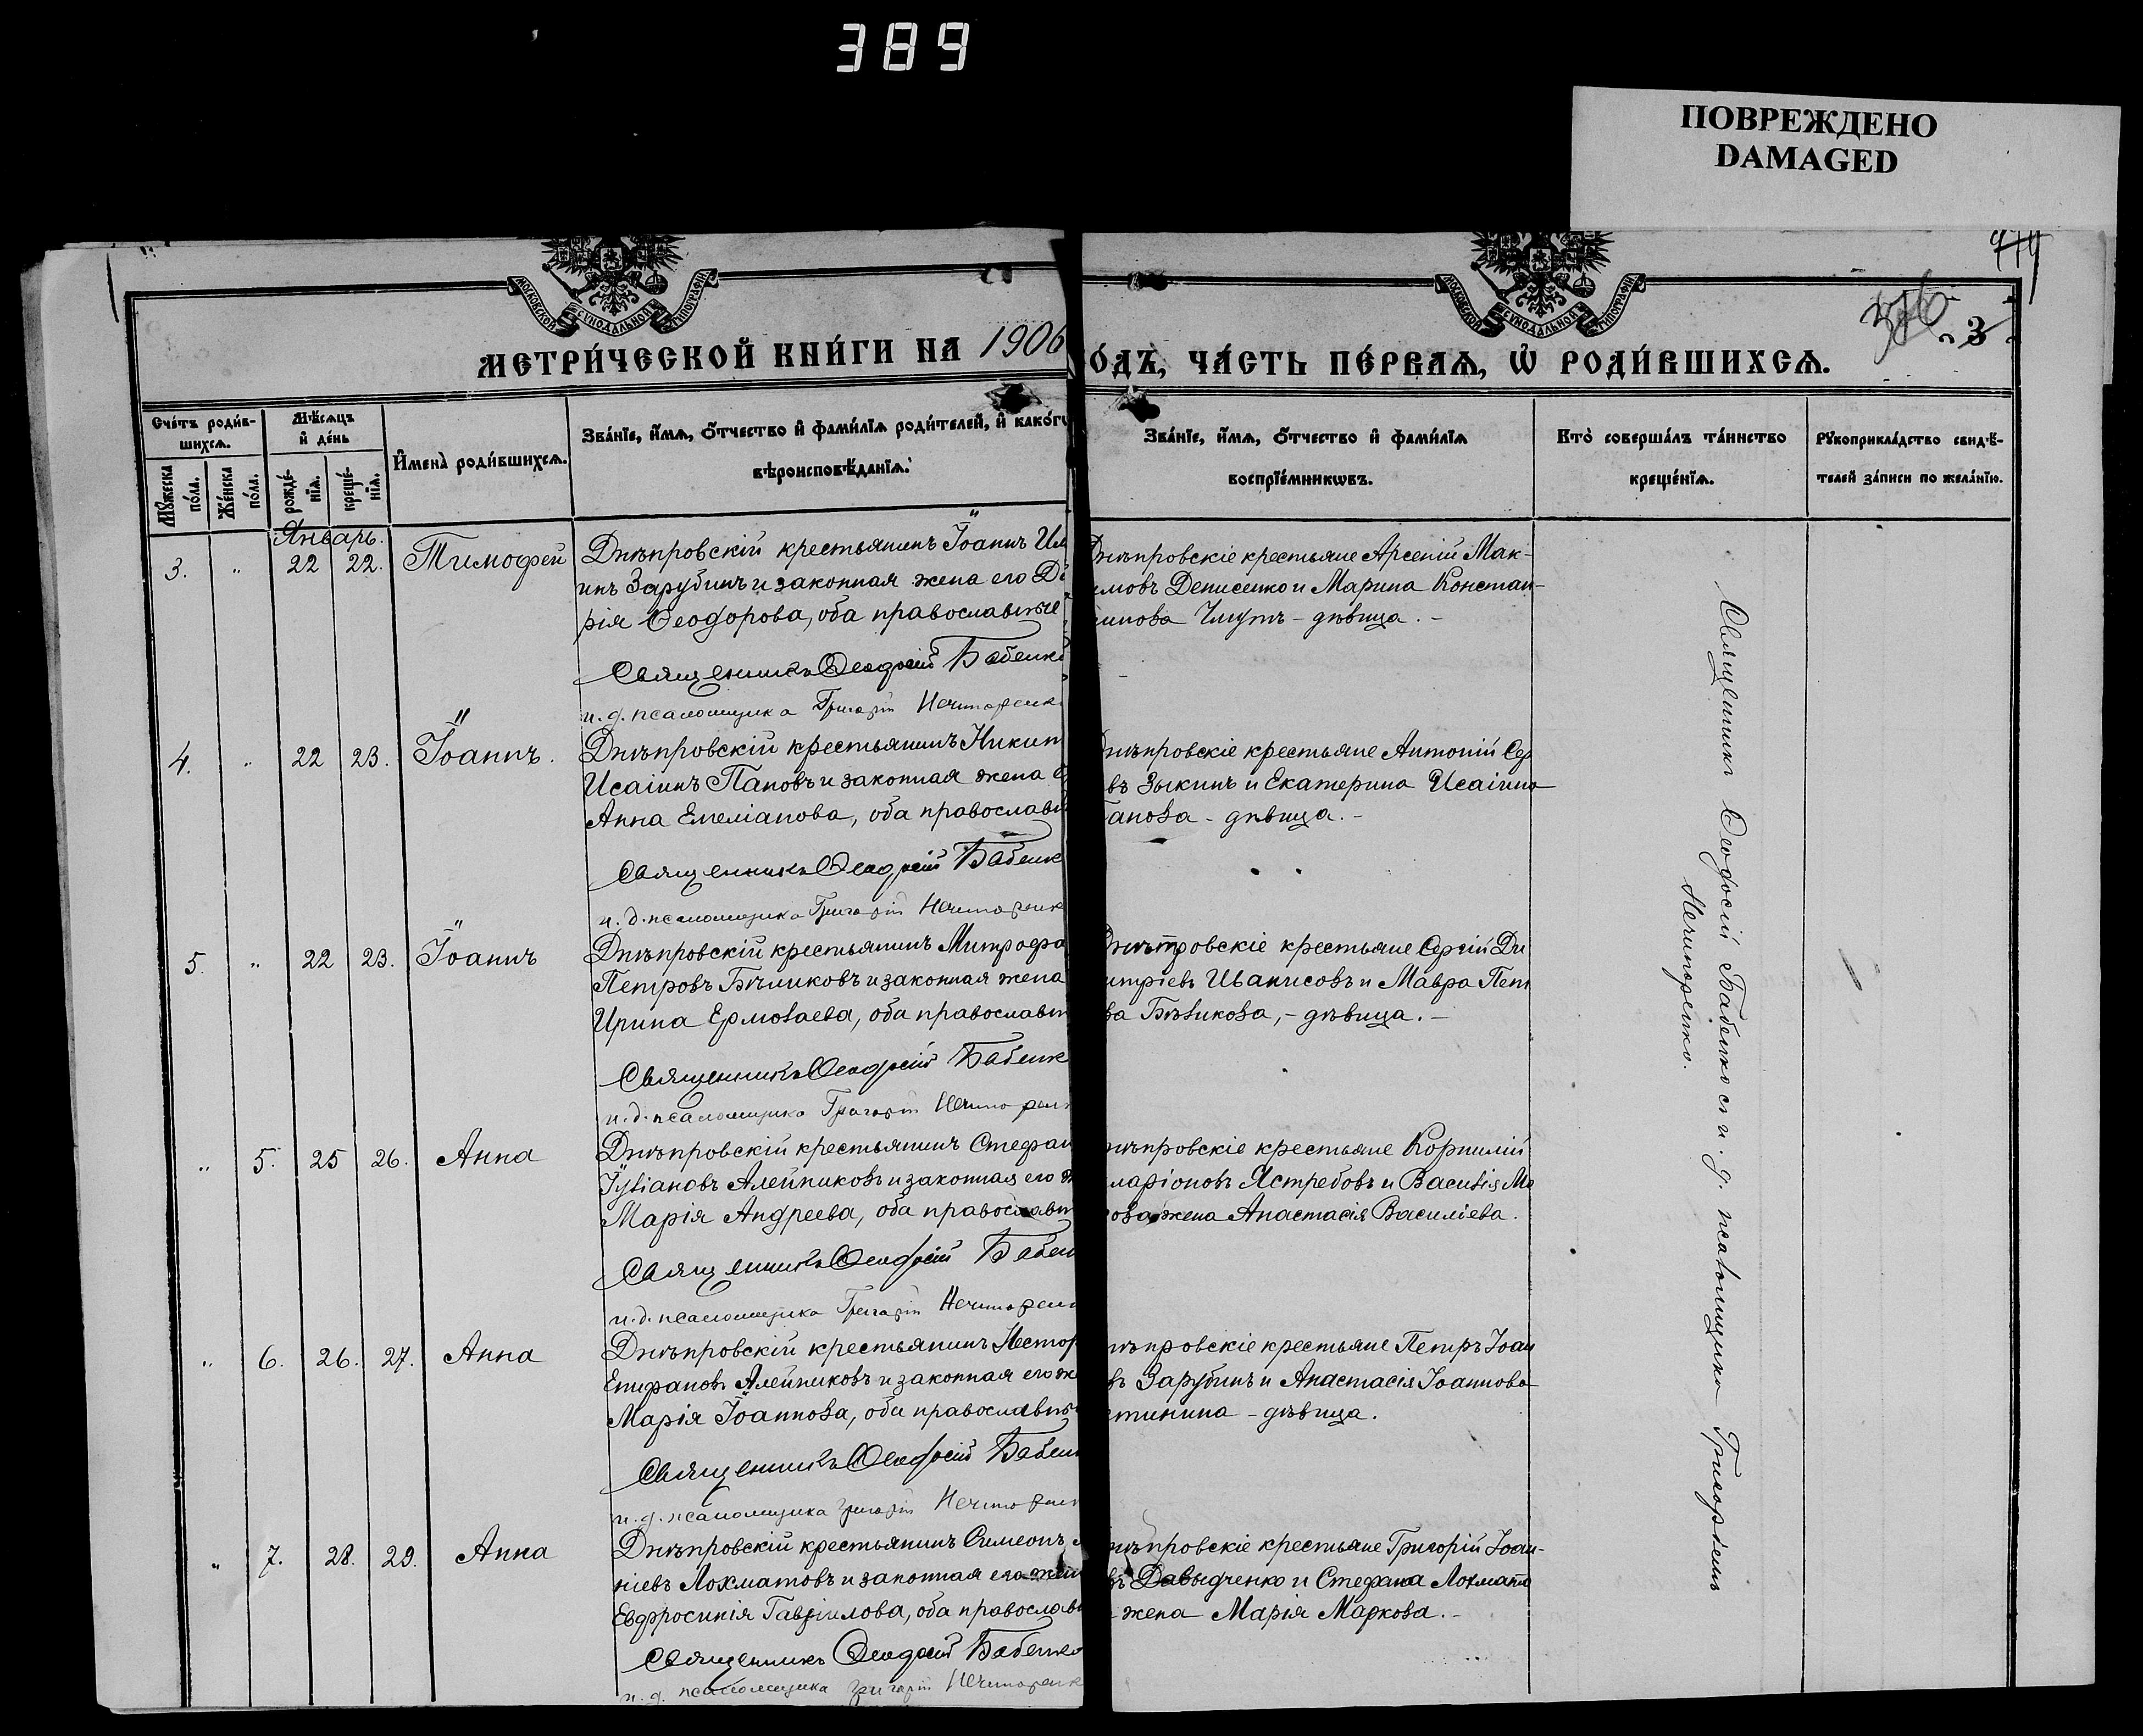 389
ПОВРЕЖДЕНО
DAMAGED
МОСКОВСКОЙ СѴНОДАЛЬНОЙ ТИПОГРАФІИ
МОСКОВСКОЙ СѴНОДАЛЬНОЙ ТИПОГРАФІИ
3
МЕТРИ́ЧЕСКОЙ КНИ́ГИ НА 1906
О́ДЪ, ЧА́СТЬ ПЕ́РВАѦ, Ѡ҆ РОДИ́ВШИХСѦ.
Сче́тъ роди́в-
шихсѧ.
Мꙋ́жеска
по́ла.
Же́нска
по́ла.
Мѣ́сѧцъ
и҆ де́нь
рожде́-
нїѧ.
креще́-
нїѧ.
И҆мена̀ роди́вшихсѧ.
Зва́нїе, и҆́мѧ, ѻ҆́тчество и҆ фами́лїѧ роди́телей, и҆ како́гѡ
вѣроисповѣ́данїѧ.
Зва́нїе, и҆́мѧ, ѻ҆́тчество и҆ фами́лїѧ
воспрїе́мникѡвъ.
Кто̀ соверша́лъ та́инство
креще́нїѧ.
Рꙋкоприкла́дство свидѣ́-
телей за́писи по жела́нїю.
Январь.
3. " 22 22. Тимофей Днѣпровскій крестьянинъ Іоаннъ
инъ Зарубинъ и законная жена его
рія Ѳеодорова, оба православные
Священникъ Ѳеодосій Бабенко
и. д. псаломщика Григорій Нечипоренк
Днѣпровскіе крестьяне Арсеній Мак-
имовъ Денисенко и Марина Констан-
инова Чмутъ - дѣвица. -
4. " 22 23. Іоаннъ. Днѣпровскій крестьянинъ Никит
Исаіинъ Пановъ и законная жена е
Анна Емеліанова, оба православн
Священникъ Ѳеодосій Бабенк
и. д. псаломщика Григорій Нечипоренк
Днѣпровскіе крестьяне Антоній Сер
въ Зыкинъ и Екатерина Исаіина
Панова - дѣвица. -
5. " 22 23. Іоаннъ Днѣпровскій крестьянинъ Митрофа
Петровъ Бѣликовъ и законная жена
Ирина Ермолаева, оба православн
Священникъ Ѳеодосій Бабенк
и. д. псаломщика Григорій Нечипорен
Днѣпровскіе крестьяне Сергій Ди
итріевъ Иванисовъ и Мавра Пет
ва Бѣликова, - дѣвица. -
" 5. 25 26. Анна Днѣпровскій крестьянинъ Стефан
Іуліановъ Алейниковъ и законная его ж
Марія Андреева, оба православн
Священникъ Ѳеодосій Бабен
и. д. псаломщика Григорій Нечипорен
нѣпровскіе крестьяне Корнилій
ларіоновъ Ястребовъ и Василія Ма
ова жена Анастасія Василіева.
" 6. 26. 27. Анна Днѣпровскій крестьянинъ Нестор
Епифановъ Алейниковъ и законная его же
Марія Іоаннова, оба православны
Священникъ Ѳеодосій Бабен
и. д. псаломщика Григорій Нечипорен
нѣпровскіе крестьяне Петръ Іоан
въ Зарубинъ и Анастасія Іоаннова
- дѣвица.
" 7. 28. 29. Анна Днѣпровскій крестьянинъ Симеонъ
ніевъ Лохматовъ и законная его жен
Евфросинія Гавріилова, оба православн
Священникъ Ѳеодосій Бабенко
и. д. псаломщика Григорій Нечипоренк
нѣпровскіе крестьяне Григорій Іоан-
въ Давыдченко и Стефана Лохмато
жена Марія Маркова. -
Священникъ Ѳеодосій Бабенко съ и. д. псаломщика Григоріемъ
Нечипоренко.